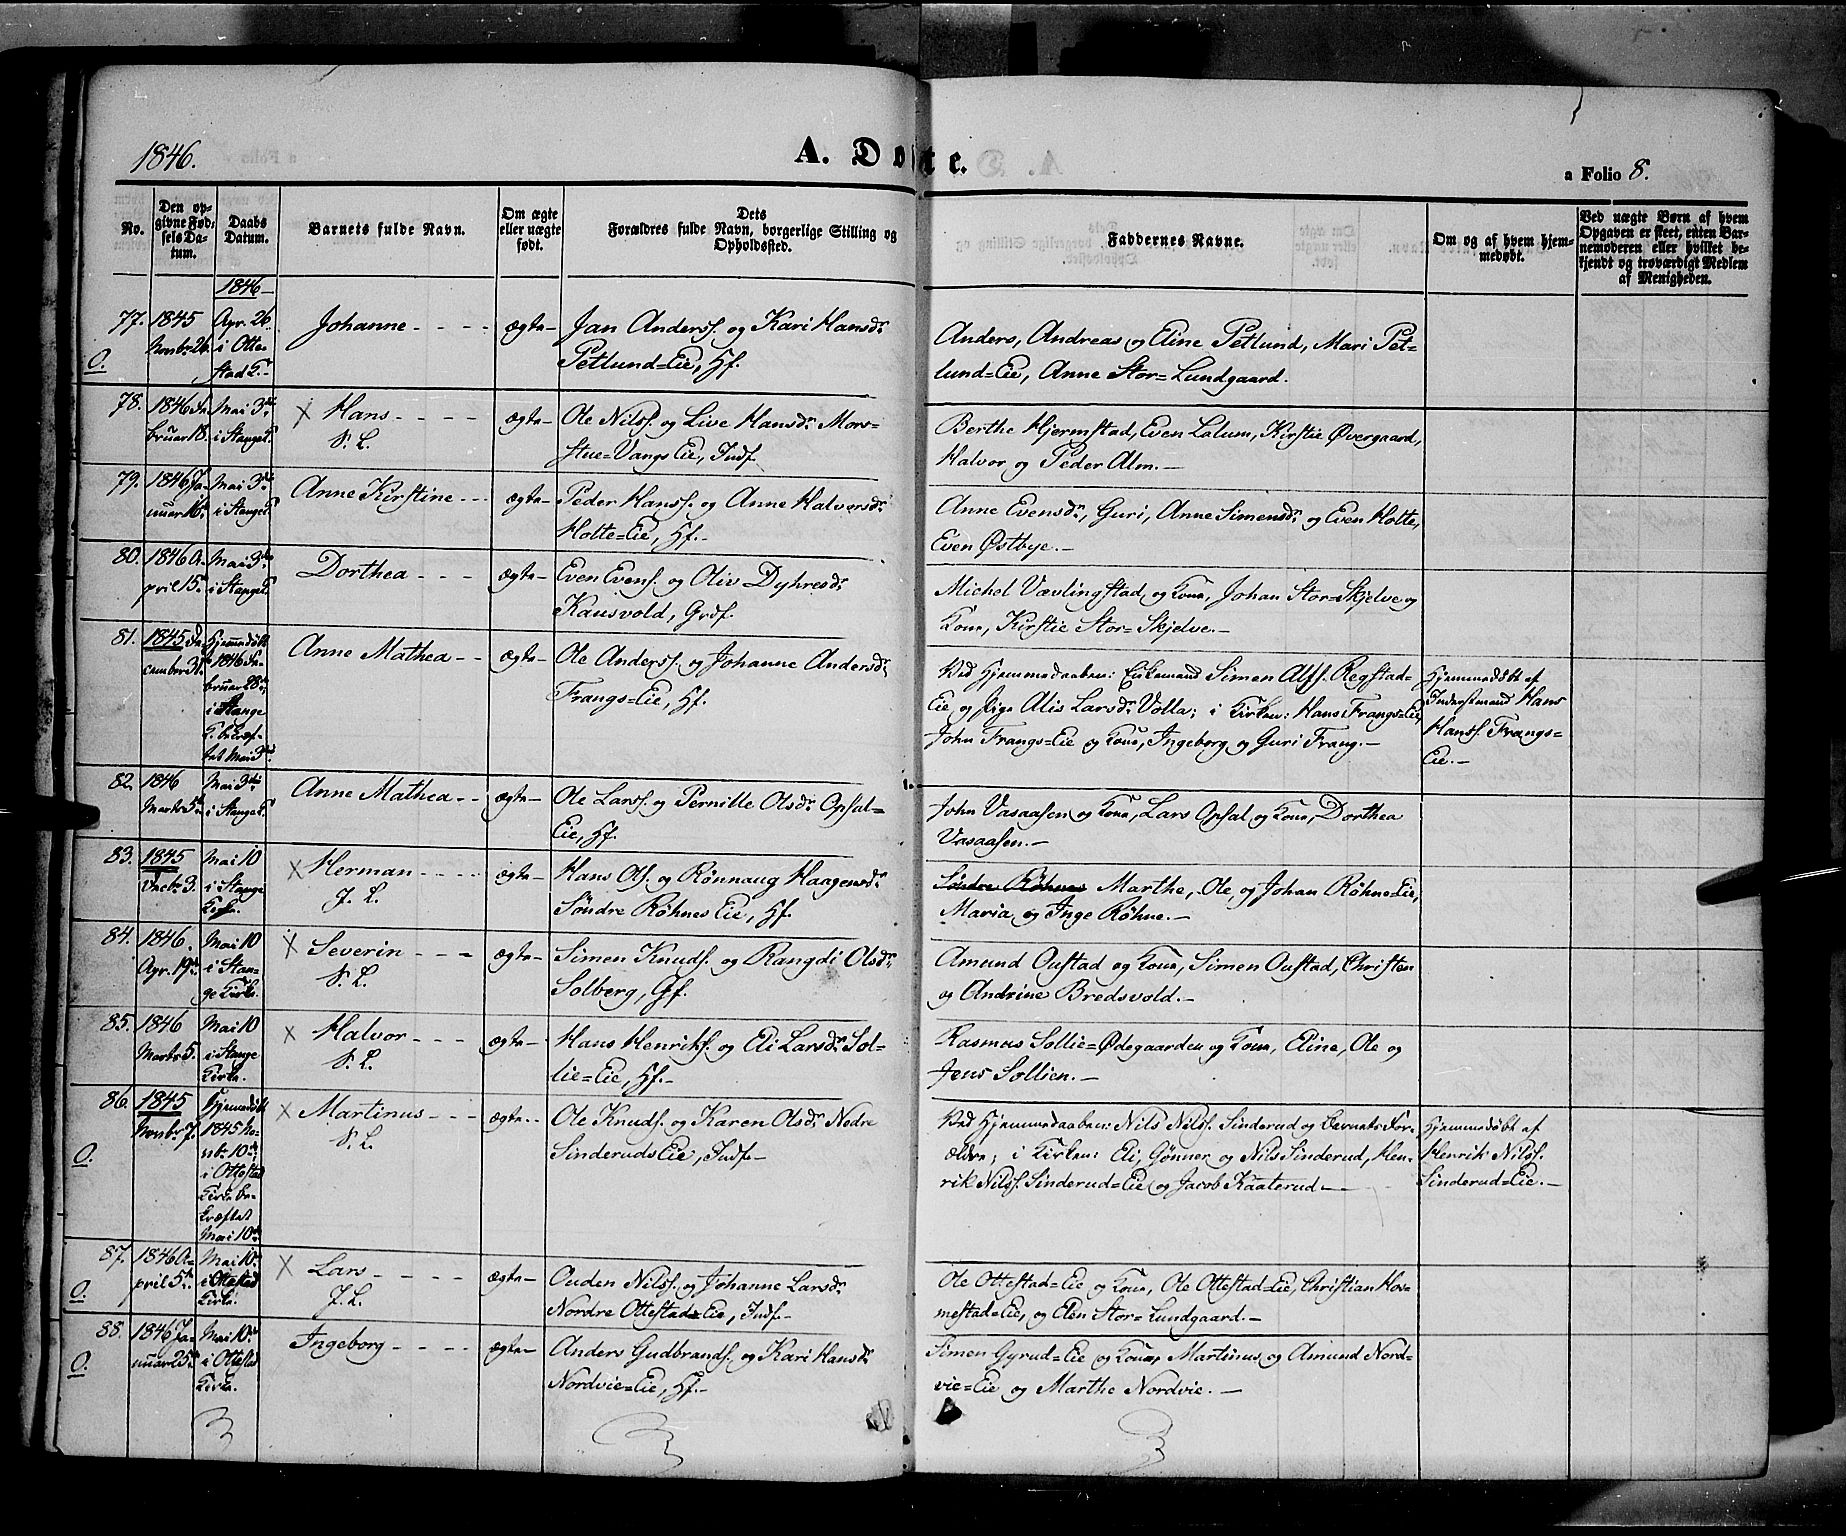 1846.
A. Døbte.
a Folio 8.
No.
Den op-
givne Fød-
sels Da-
tum.
Daabs
Datum.
Barnets fulde Navn.
Om ægte
eller uægte
født.
Dets
Forældres fulde Navn, borgerlige Stilling og
Opholdssted.
Faddernes Navne.
Om og af hvem hjem-
medøbt.
Ved uægte Børn af hvem
Opgaven er skeet, enten Bar-
nemoderen eller hvilket be-
kjendt og troværdigt Medlem
af Menigheden.
1846
77.
O.
1845
Novbr 26.
Apr. 26.
i Otte-
stad K.
Johanne
ægte
Jan Anders. og Kari Hansdr
Petlund=Eie, Hf.
Anders, Andreas og Eline Petlund, Mari Pet-
lund=Eie, Anne Stor=Lundgaard.
78.
1846 Fe-
bruar 18.
Mai 3de
i Stange K.
X Hans
S. L.
ægte
Ole Nils. og Live Hansdr Mors-
stue=Vangs Eie, Indf.
Berthe Hjermstad, Even Lalum, Kirstie Øvergaard,
Halvor og Peder Alm.
79.
1846 Ja-
nuar 16de
Mai 3de
i Stange K.
Anne Kirstine
ægte
Peder Hans. og Anne Halvorsdr
Holte=Eie, Hf.
Anne Evensdr, Guri, Anne Simensdr og Even Holte,
Even Østbye.
80.
1846 A-
pril 15de
Mai 3de
i Stange K.
Dorthea
ægte
Even Evens. og Oliv Dyhresdr
Kausvold, Grdf.
Michel Vævlingstad og Kone, Johan Stor=Skjelve og
Kone, Kirstie Stor=Skjelve.
81.
1845 De-
cember 31te
Hjemmedøbt
1846 Fe-
bruar 28de,
i Stange
K. bekræf-
tet Mai 3de
Anne Mathea
ægte
Ole Anders. og Johanne Andersdr
Frangs=Eie, Hf.
Ved Hjemmedaaben: Enkemand Simen Alfs. Regstad-
Eie og Pige Alis Larsdr Volla; i Kirken: Hans Frangs=Eie,
John Frangs=Eie og Kone, Ingeborg og Guri Frang.
Hjemmedøbt af
Inderstmand Hans
Hans. Frangs=
Eie.
82.
1846
Marts 5te
Mai 3die
i Stange K.
Anne Mathea
ægte
Ole Lars. og Pernille Olsdr Opsal-
Eie, Hf.
John Vasaasen og Kone, Lars Opsal og Kone, Dorthea
Vasaasen.
83.
1845
Decbr 3.
Mai 10
i Stange
Kirke.
X Herman
J. L.
ægte
Hans Ols. og Rønnaug Haagensdr
Søndre Røhnes Eie, Hf.
Søndre Røhnes Marthe, Ole, og Johan Røhne=Eie,
Maria og Inge Røhne.
84.
1846.
Apr. 19de
Mai 10
i Stan-
ge Kirke.
X Severin
S. L.
ægte
Simen Knuds. og Rangdi Olsdr
Solberg, Gf.
Amund Oustad og Kone, Simen Oustad, Christen
og Andrine Bredsvold.
85.
1846
Marts 5.
Mai 10
i Stange
Kirke.
X Halvor
S. L.
ægte
Hans Henriks. og Eli Larsdr Sol-
lie=Eie, Hf.
Rasmus Sollie=Ødegaarden og Kone, Eline, Ole og
Jens Sollien.
86.
O.
1845
Novbr 7.
Hjemmedøbt
1845 No-
vbr 10de;
i Ottestad
Kirke be-
kræftet
Mai 10de
X Martinus
S. L.
ægte
Ole Knuds. og Karen Olsdr Nedre
Sinderuds Eie, Indf.
Ved Hjemmedaaben: Nils Nils. Sinderud og Barnets For-
ældre; i Kirken: Eli, Gønner og Nils Sinderud, Hen-
rik Nils. Sinderud=Eie og Jacob Kaaterud
Hjemmedøbt af
Henrik Nils.
Sinderud=Eie.
87.
O.
1846 A-
pril 5te
Mai 10.
i Ottestad
Kirke.
X Lars
J. L.
ægte
Ouden Nils. og Johanne Larsdr
Nordre Ottestad=Eie, Indf.
Ole Ottestad=Eie og Kone, Ole Ottestad=Eie, Christian Hor-
mestad=Eie, og Elen Stor=Lundgaard.
88.
O.
1846 Ja-
nuar 25de
Mai 10de
i Ottestad
Kirke.
Ingeborg
ægte
Anders Gudbrands. og Kari Hansdr
Nordvie=Eie, Hf.
Simen Gyrud=Eie og Kone, Martinus og Amund Nord-
vie=Eie og Marthe Nordvie.